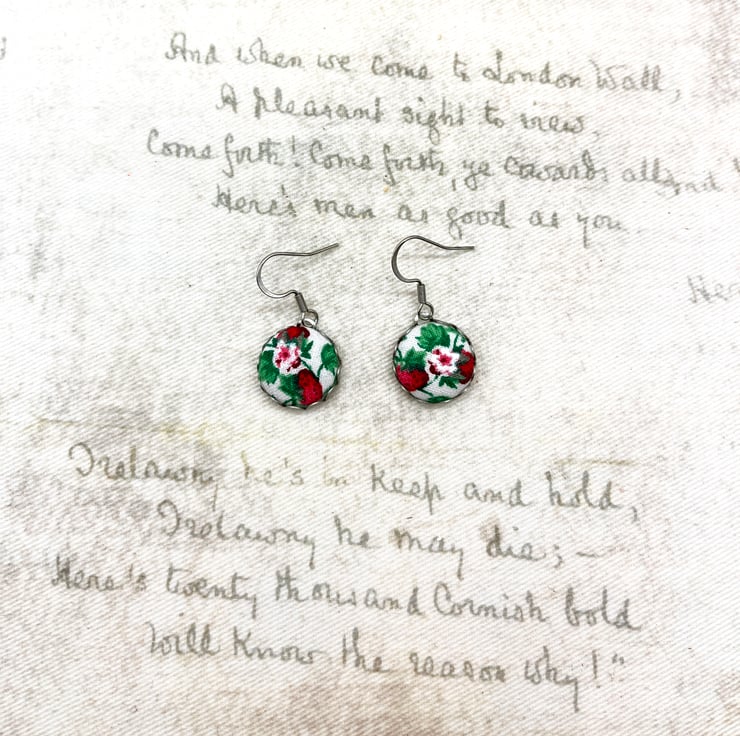 And when we come to London Wall,
A pleasant sight to view,
Come forth! Come forth, ye cowards all, And
Here's men as good as you.
Her
Trelawny he's in keep and hold,
Trelawny he may die; —
Here's twenty thousand Cornish bold
Will know the reason why!"